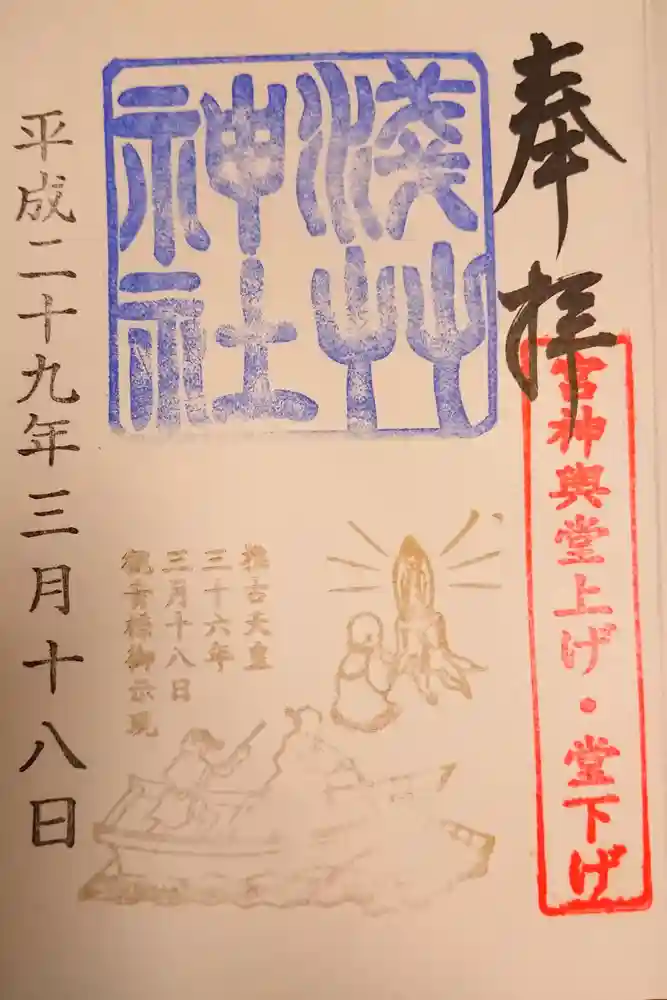 奉拝
宮神輿堂上げ・堂下げ
淺艸
神社
推古天皇
三十六年
三月十八日
観音様御示現
平成二十九年三月十八日